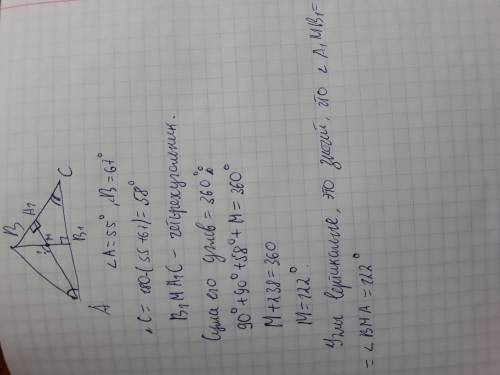 B
A1
M
C
B1
A
∠A=55°, B=67°
∠C=180-(55+67)=58°
B1MA1C - четырехугольник.
Сумма его углов = 360°
90°+90°+58°+M=360°
M+238=360
M=122°
Углы вертикальные, это значит, что ∠A1MB1=
=∠BMA=122°